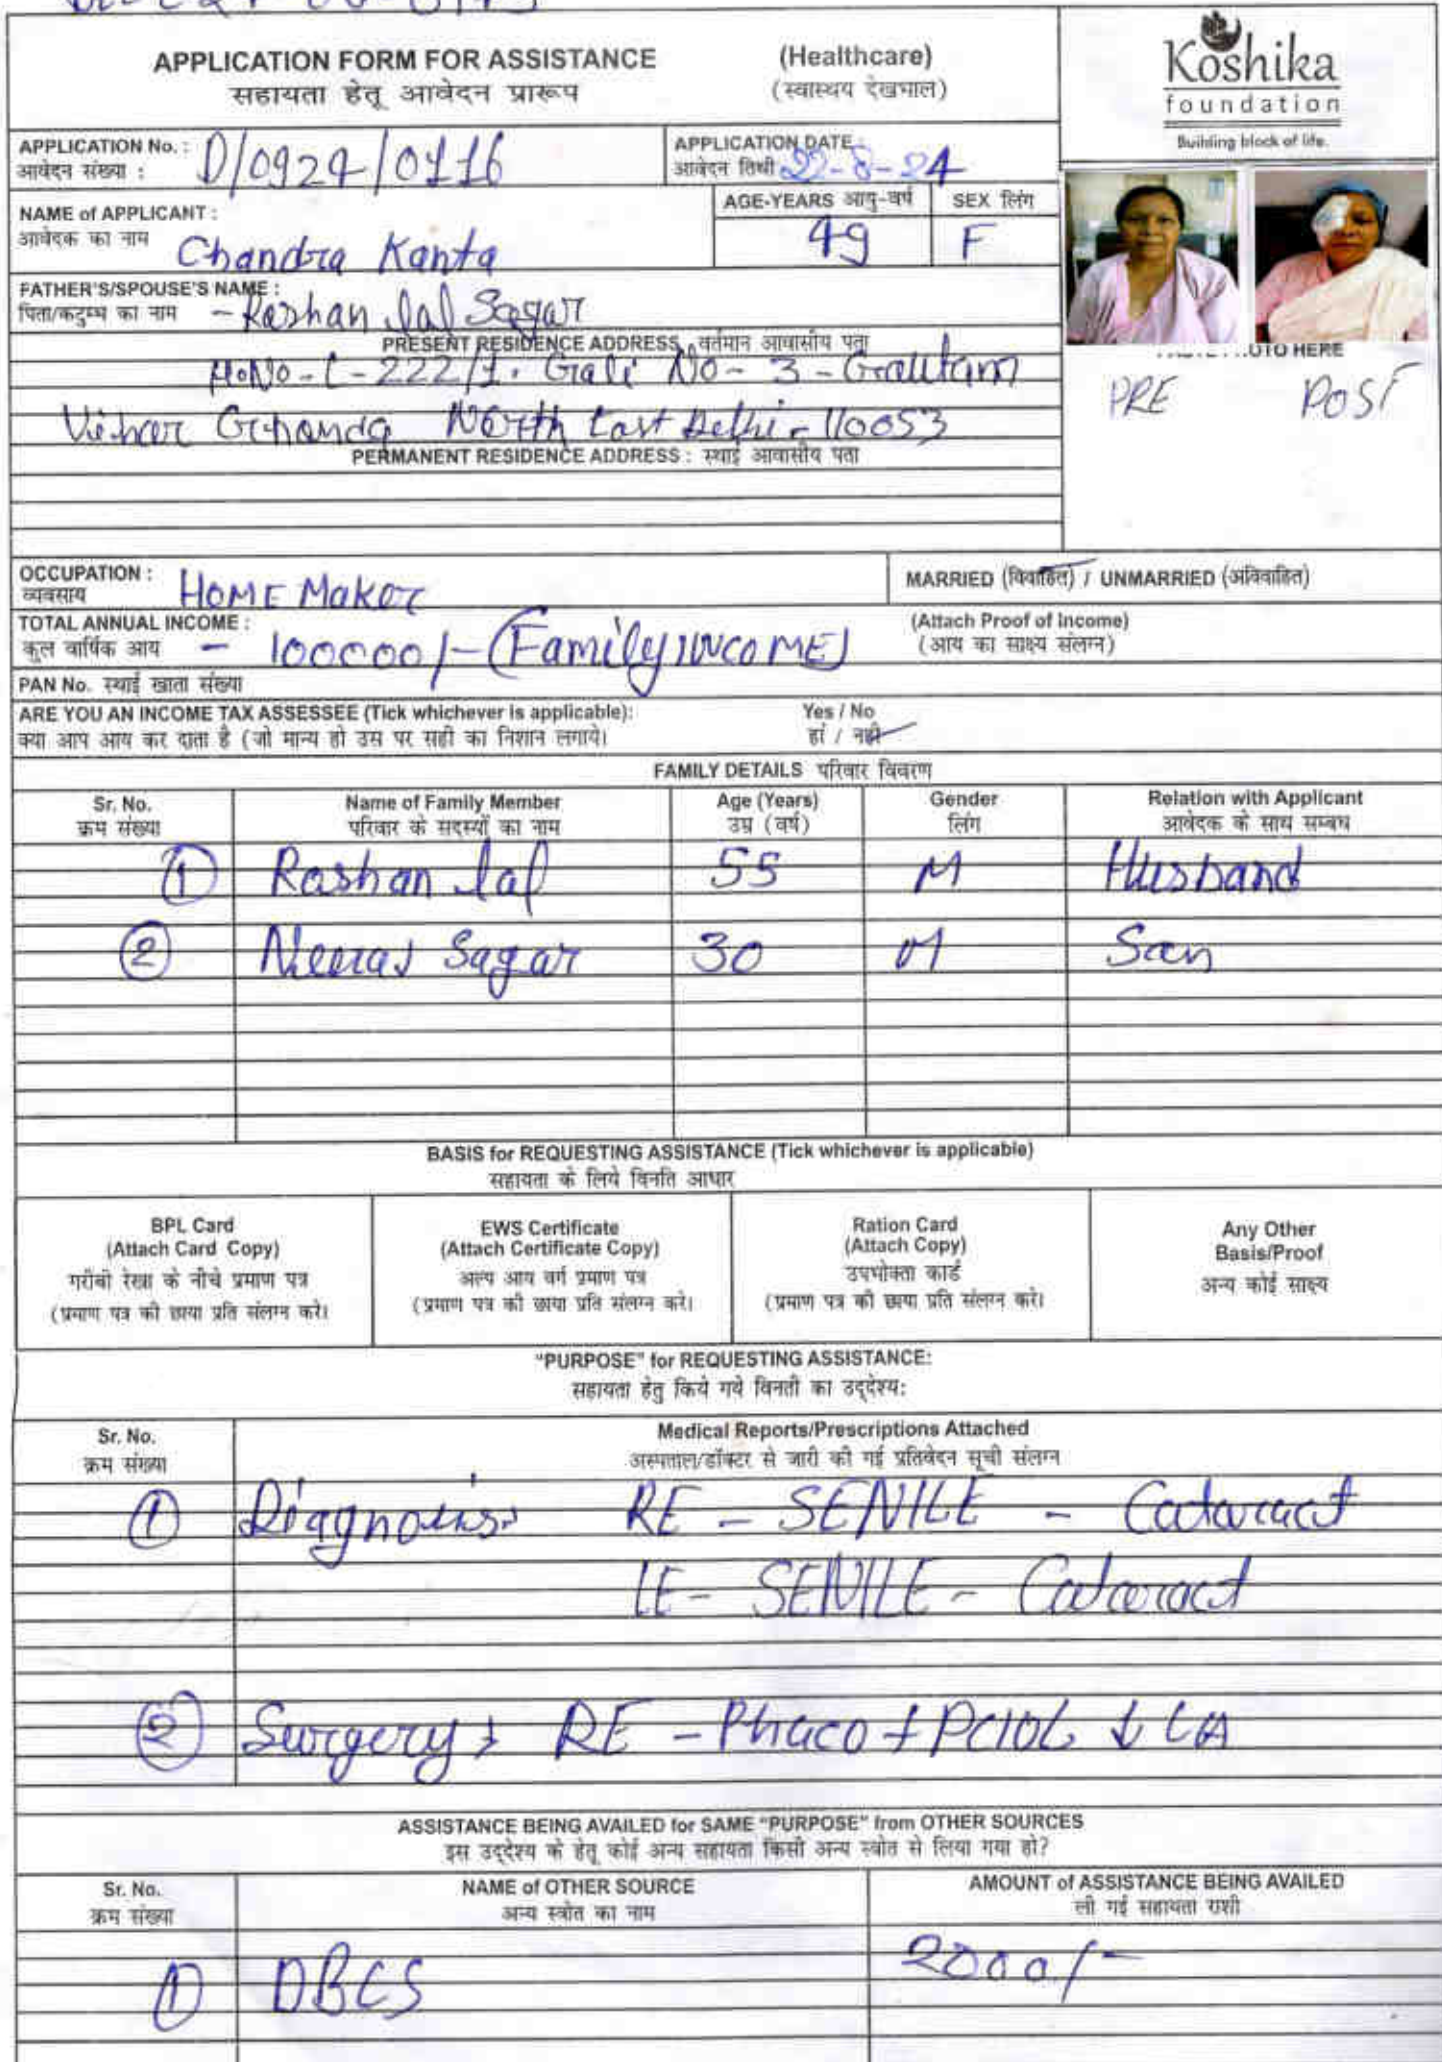 APPLICATION FORM FOR ASSISTANCE (Healthcare)
सहायता हेतू आवेदन प्रारूप (स्वास्थय देखभाल)
Koshika
foundation
Building block of life.
APPLICATION No. :
आवेदन संख्या : D/0924/0116
APPLICATION DATE :
आवेदन तिथी 22-8-24
NAME of APPLICANT :
आवेदक का नाम Chandra Kanta
AGE-YEARS आयु-वर्ष SEX लिंग
49 F
FATHER'S/SPOUSE'S NAME :
पिता/कटुम्ब का नाम - Rashan lal Sagar
PRESENT RESIDENCE ADDRESS वर्तमान आवासीय पता
H.No - C-222/1. Gali No - 3 - Gautam
Vihar Ghonda North East Delhi - 110053
PERMANENT RESIDENCE ADDRESS : स्थाई आवासीय पता
OTO HERE
PRE POST
OCCUPATION :
व्यवसाय HOME Maker
MARRIED (विवाहित) / UNMARRIED (अविवाहित)
TOTAL ANNUAL INCOME :
कुल वार्षिक आय - 100000/- (Family INCOME)
(Attach Proof of Income)
(आय का साक्ष्य संलग्न)
PAN No. स्थाई खाता संख्या
ARE YOU AN INCOME TAX ASSESSEE (Tick whichever is applicable): Yes / No
क्या आप आय कर दाता है (जो मान्य हो उस पर सही का निशान लगाये। हां / नही
FAMILY DETAILS परिवार विवरण
Sr. No. Name of Family Member Age (Years) Gender Relation with Applicant
क्रम संख्या परिवार के सदस्यों का नाम उम्र (वर्ष) लिंग आवेदक के साथ सम्बध
1 Rashan lal 55 M Husband
2 Neeraj Sagar 30 M Son
BASIS for REQUESTING ASSISTANCE (Tick whichever is applicable)
सहायता के लिये विनति आधार
BPL Card
(Attach Card Copy)
गरीबी रेखा के नीचे प्रमाण पत्र
(प्रमाण पत्र की छाया प्रति संलग्न करे।
EWS Certificate
(Attach Certificate Copy)
अल्प आय वर्ग प्रमाण पत्र
(प्रमाण पत्र की छाया प्रति संलग्न करे।
Ration Card
(Attach Copy)
उपभोक्ता कार्ड
(प्रमाण पत्र की छाया प्रति संलग्न करे।
Any Other
Basis/Proof
अन्य कोई साक्ष्य
"PURPOSE" for REQUESTING ASSISTANCE:
सहायता हेतु किये गये विनती का उद्देश्य:
Sr. No. Medical Reports/Prescriptions Attached
क्रम संख्या अस्पताल/डॉक्टर से जारी की गई प्रतिवेदन सूची संलग्न
1 Diagnosis: RE - SENILE - Cataract
LE - SENILE - Cataract
2 Surgery: RE - Phaco + PCIOL ↓ LA
ASSISTANCE BEING AVAILED for SAME "PURPOSE" from OTHER SOURCES
इस उद्देश्य के हेतू कोई अन्य सहायता किसी अन्य स्त्रोत से लिया गया हो?
Sr. No. NAME of OTHER SOURCE AMOUNT of ASSISTANCE BEING AVAILED
क्रम संख्या अन्य स्त्रोत का नाम ली गई सहायता राशी
1 DBCS 2000/-